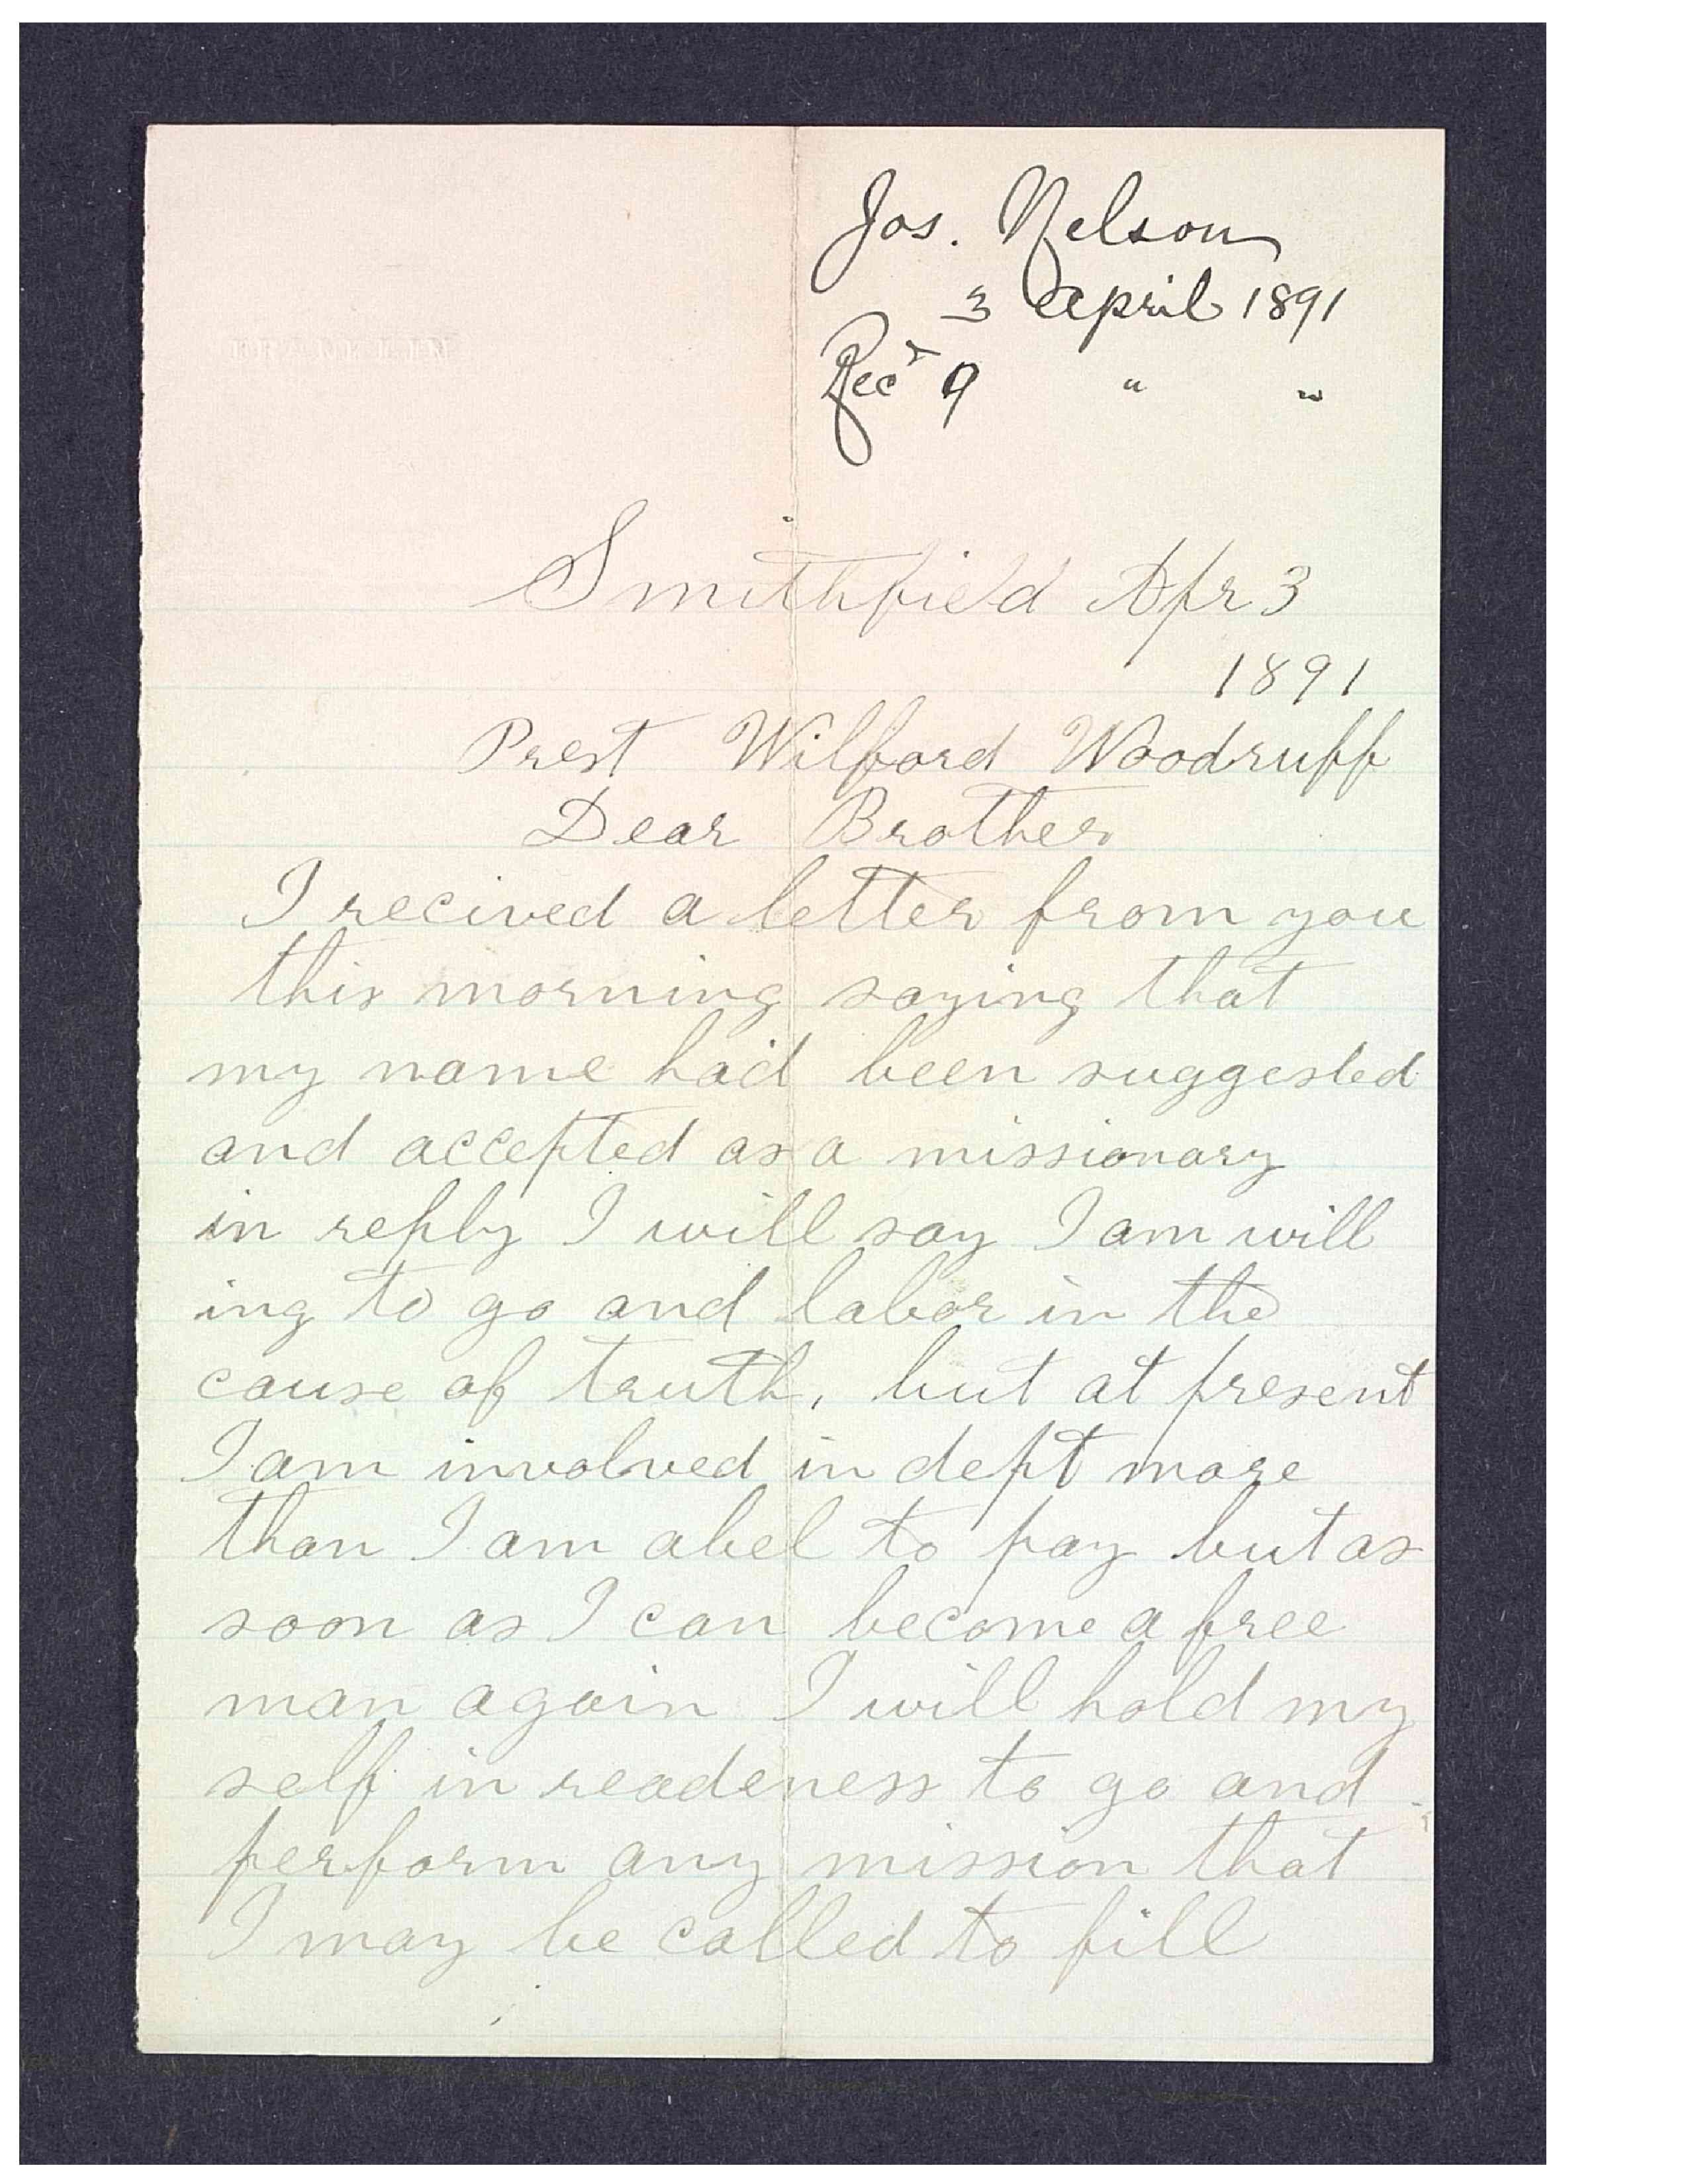 Jos. Nelson
3 April 1891
Recd 9 " "
Smithfield Apr 3
1891
Prest Wilford Woodruff
Dear Brother
I recived a letter from you
this morning saying that
my name had been suggested
and accepted as a missionary
in reply I will say I am will
ing to go and labor in the
cause of truth, but at present
I am involved in dept more
than I am abel to pay but as
soon as I can become a free
man again I will hold my
self in readeness to go and
perform any mission that
I may be called to fill